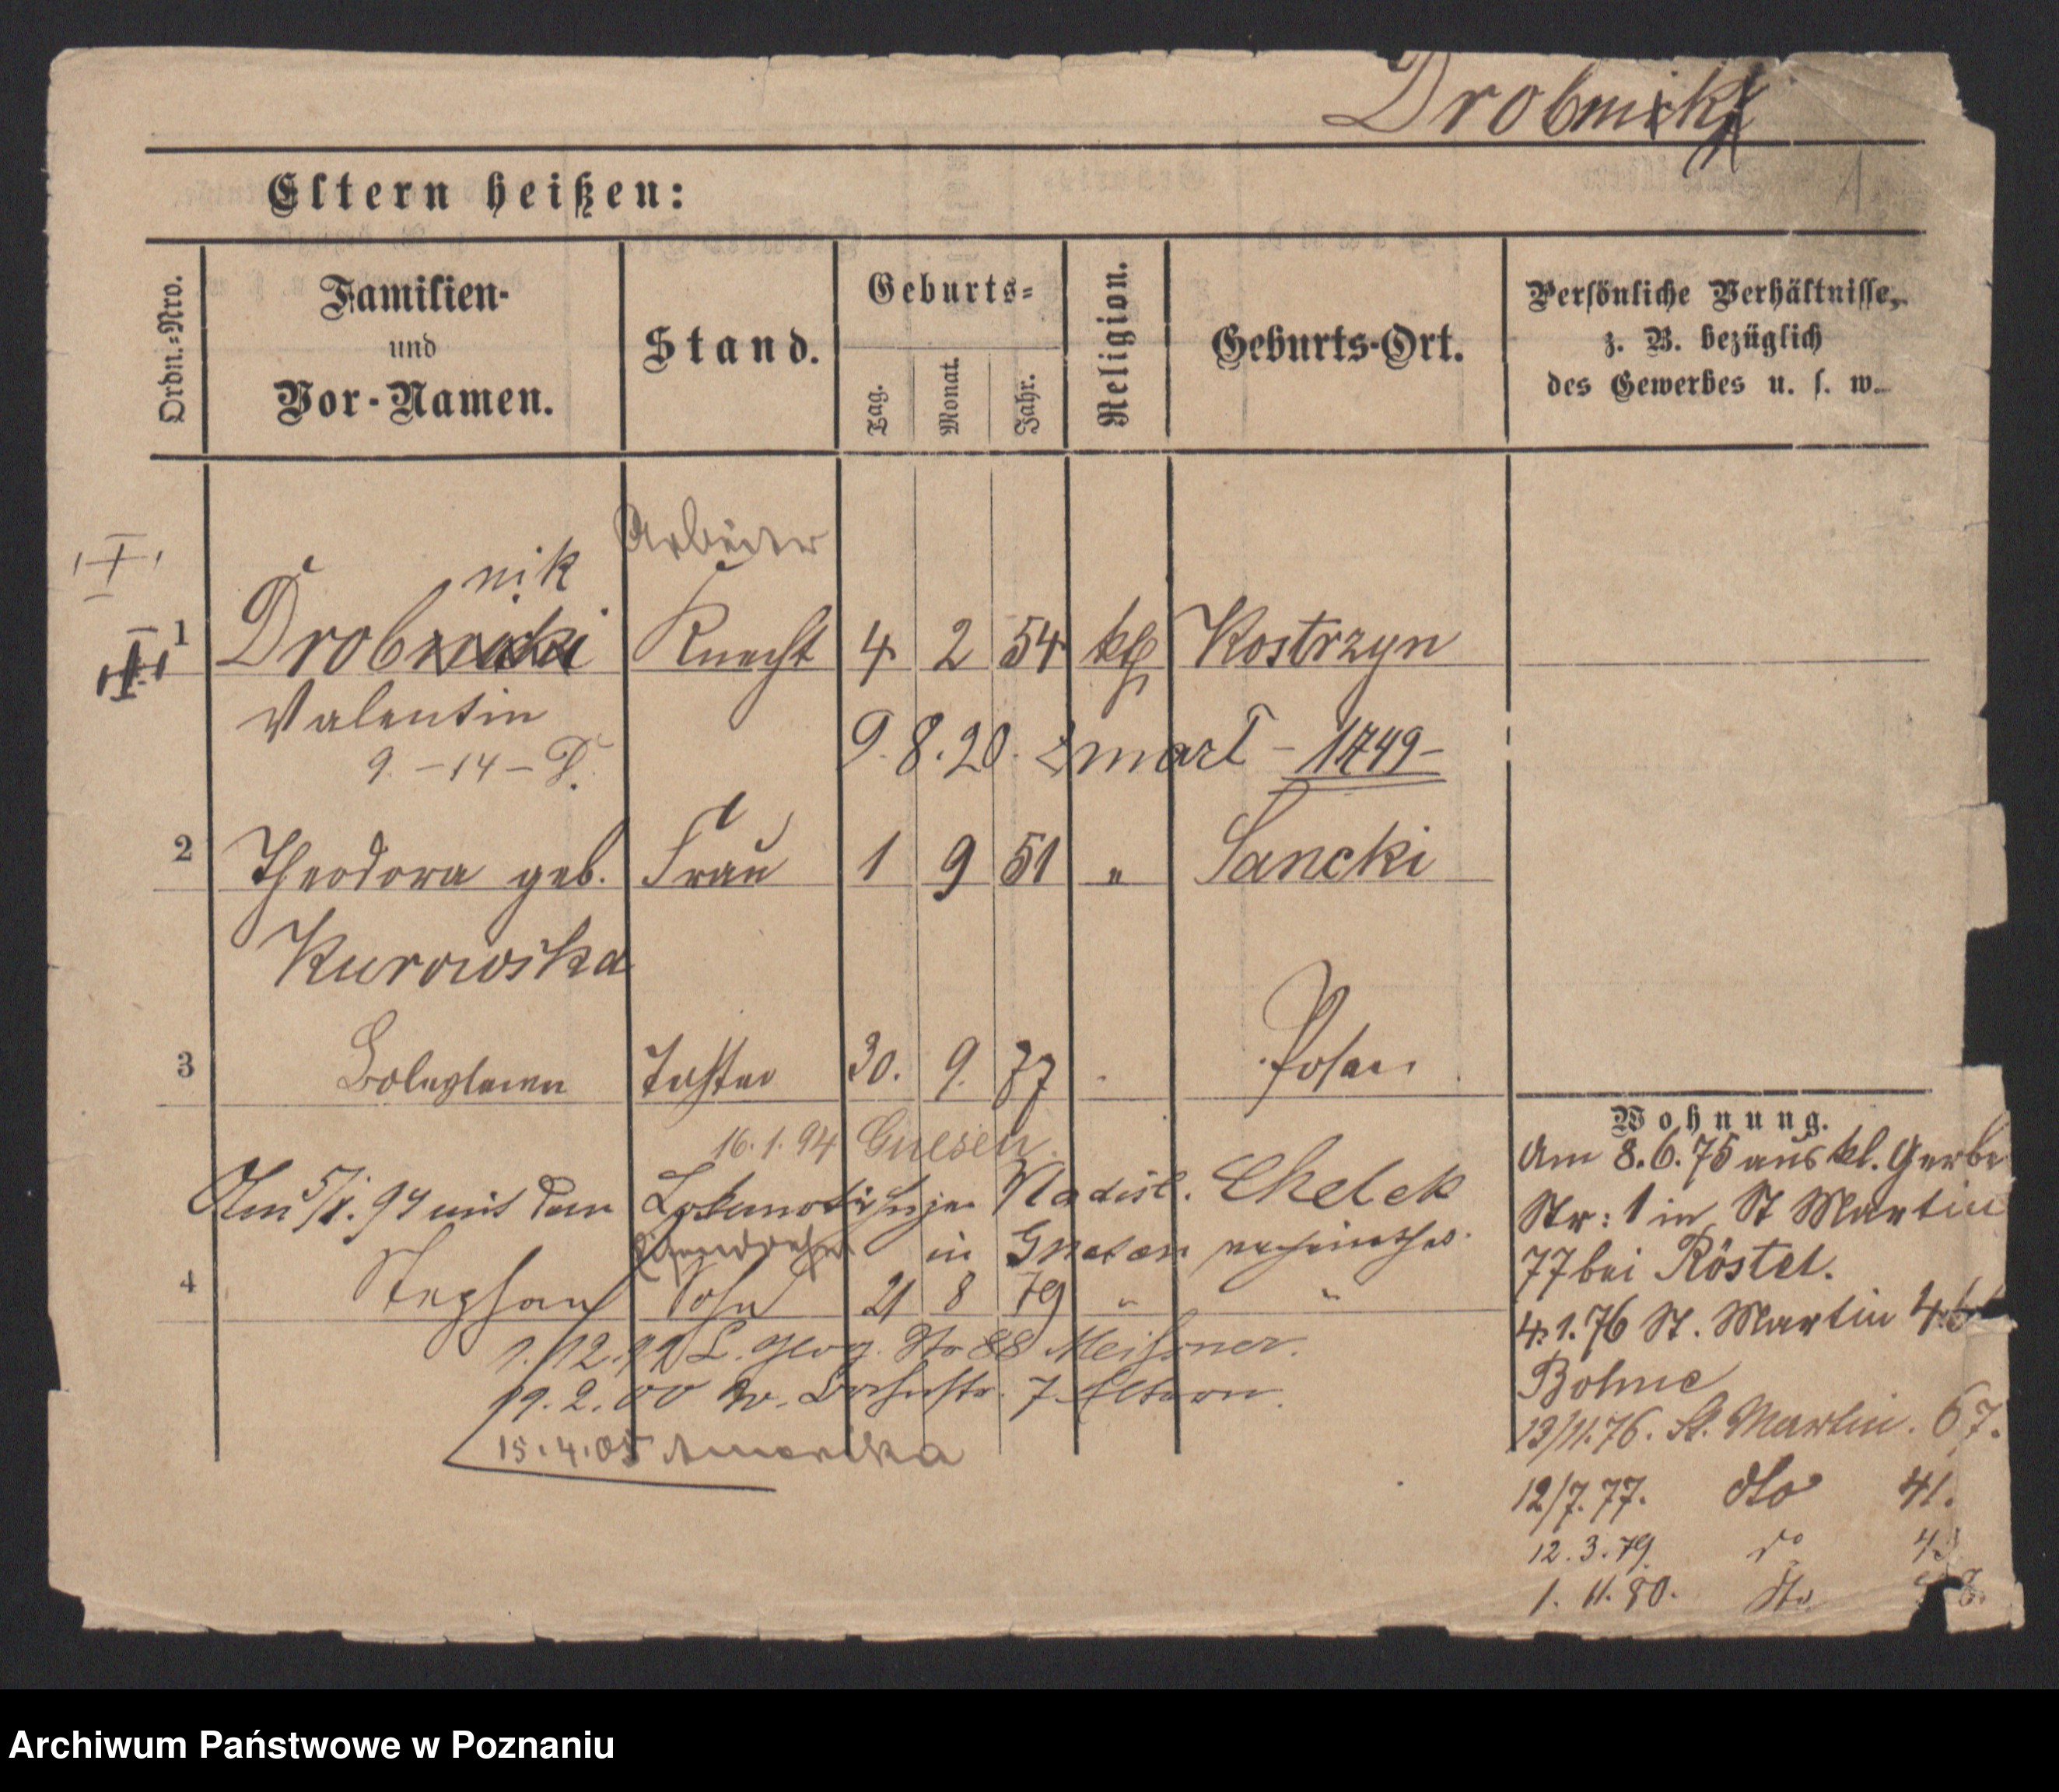 Drobnik
1
Eltern heißen:
Ordn.=Nro.
Familien-
und
Vor-Namen.
Stand.
Geburts=
Tag.
Monat.
Jahr.
Religion.
Geburts-Ort.
Persönliche Verhältnisse,
z. B. bezüglich
des Gewerbes u. s. w.
Arbeiter
nik
1 Drobnicki Knecht 4 2 54 kth Kostrzyn
Valentin
9.8.20. zmarł - 1749 -
9. - 14 - D.
2 Theodora geb. Frau 1 9 51 " Sancki
Kurowska
3 Tochter 30. 9. 77 Posen
16.1.94 Gnesen
Am 5/1. 94 mit dem Wladisl. Chelek
in Gnesen verheirathet.
4 Stephan Sohn 21 8 79 " "
1.12.99 Str 88 Meißner.
19.2.00 7 Eltern.
15.4.05 Amerika
Wohnung.
Am 8.6.75 aus kl. Gerber
Str: 1 in St Martin
77 bei Röstel.
4.1.76 St. Martin
Bohme
13/11.76. St. Martin. 67.
12/7.77. dto 41.
12.3.79. do
1.11.80. dto
Archiwum Państwowe w Poznaniu